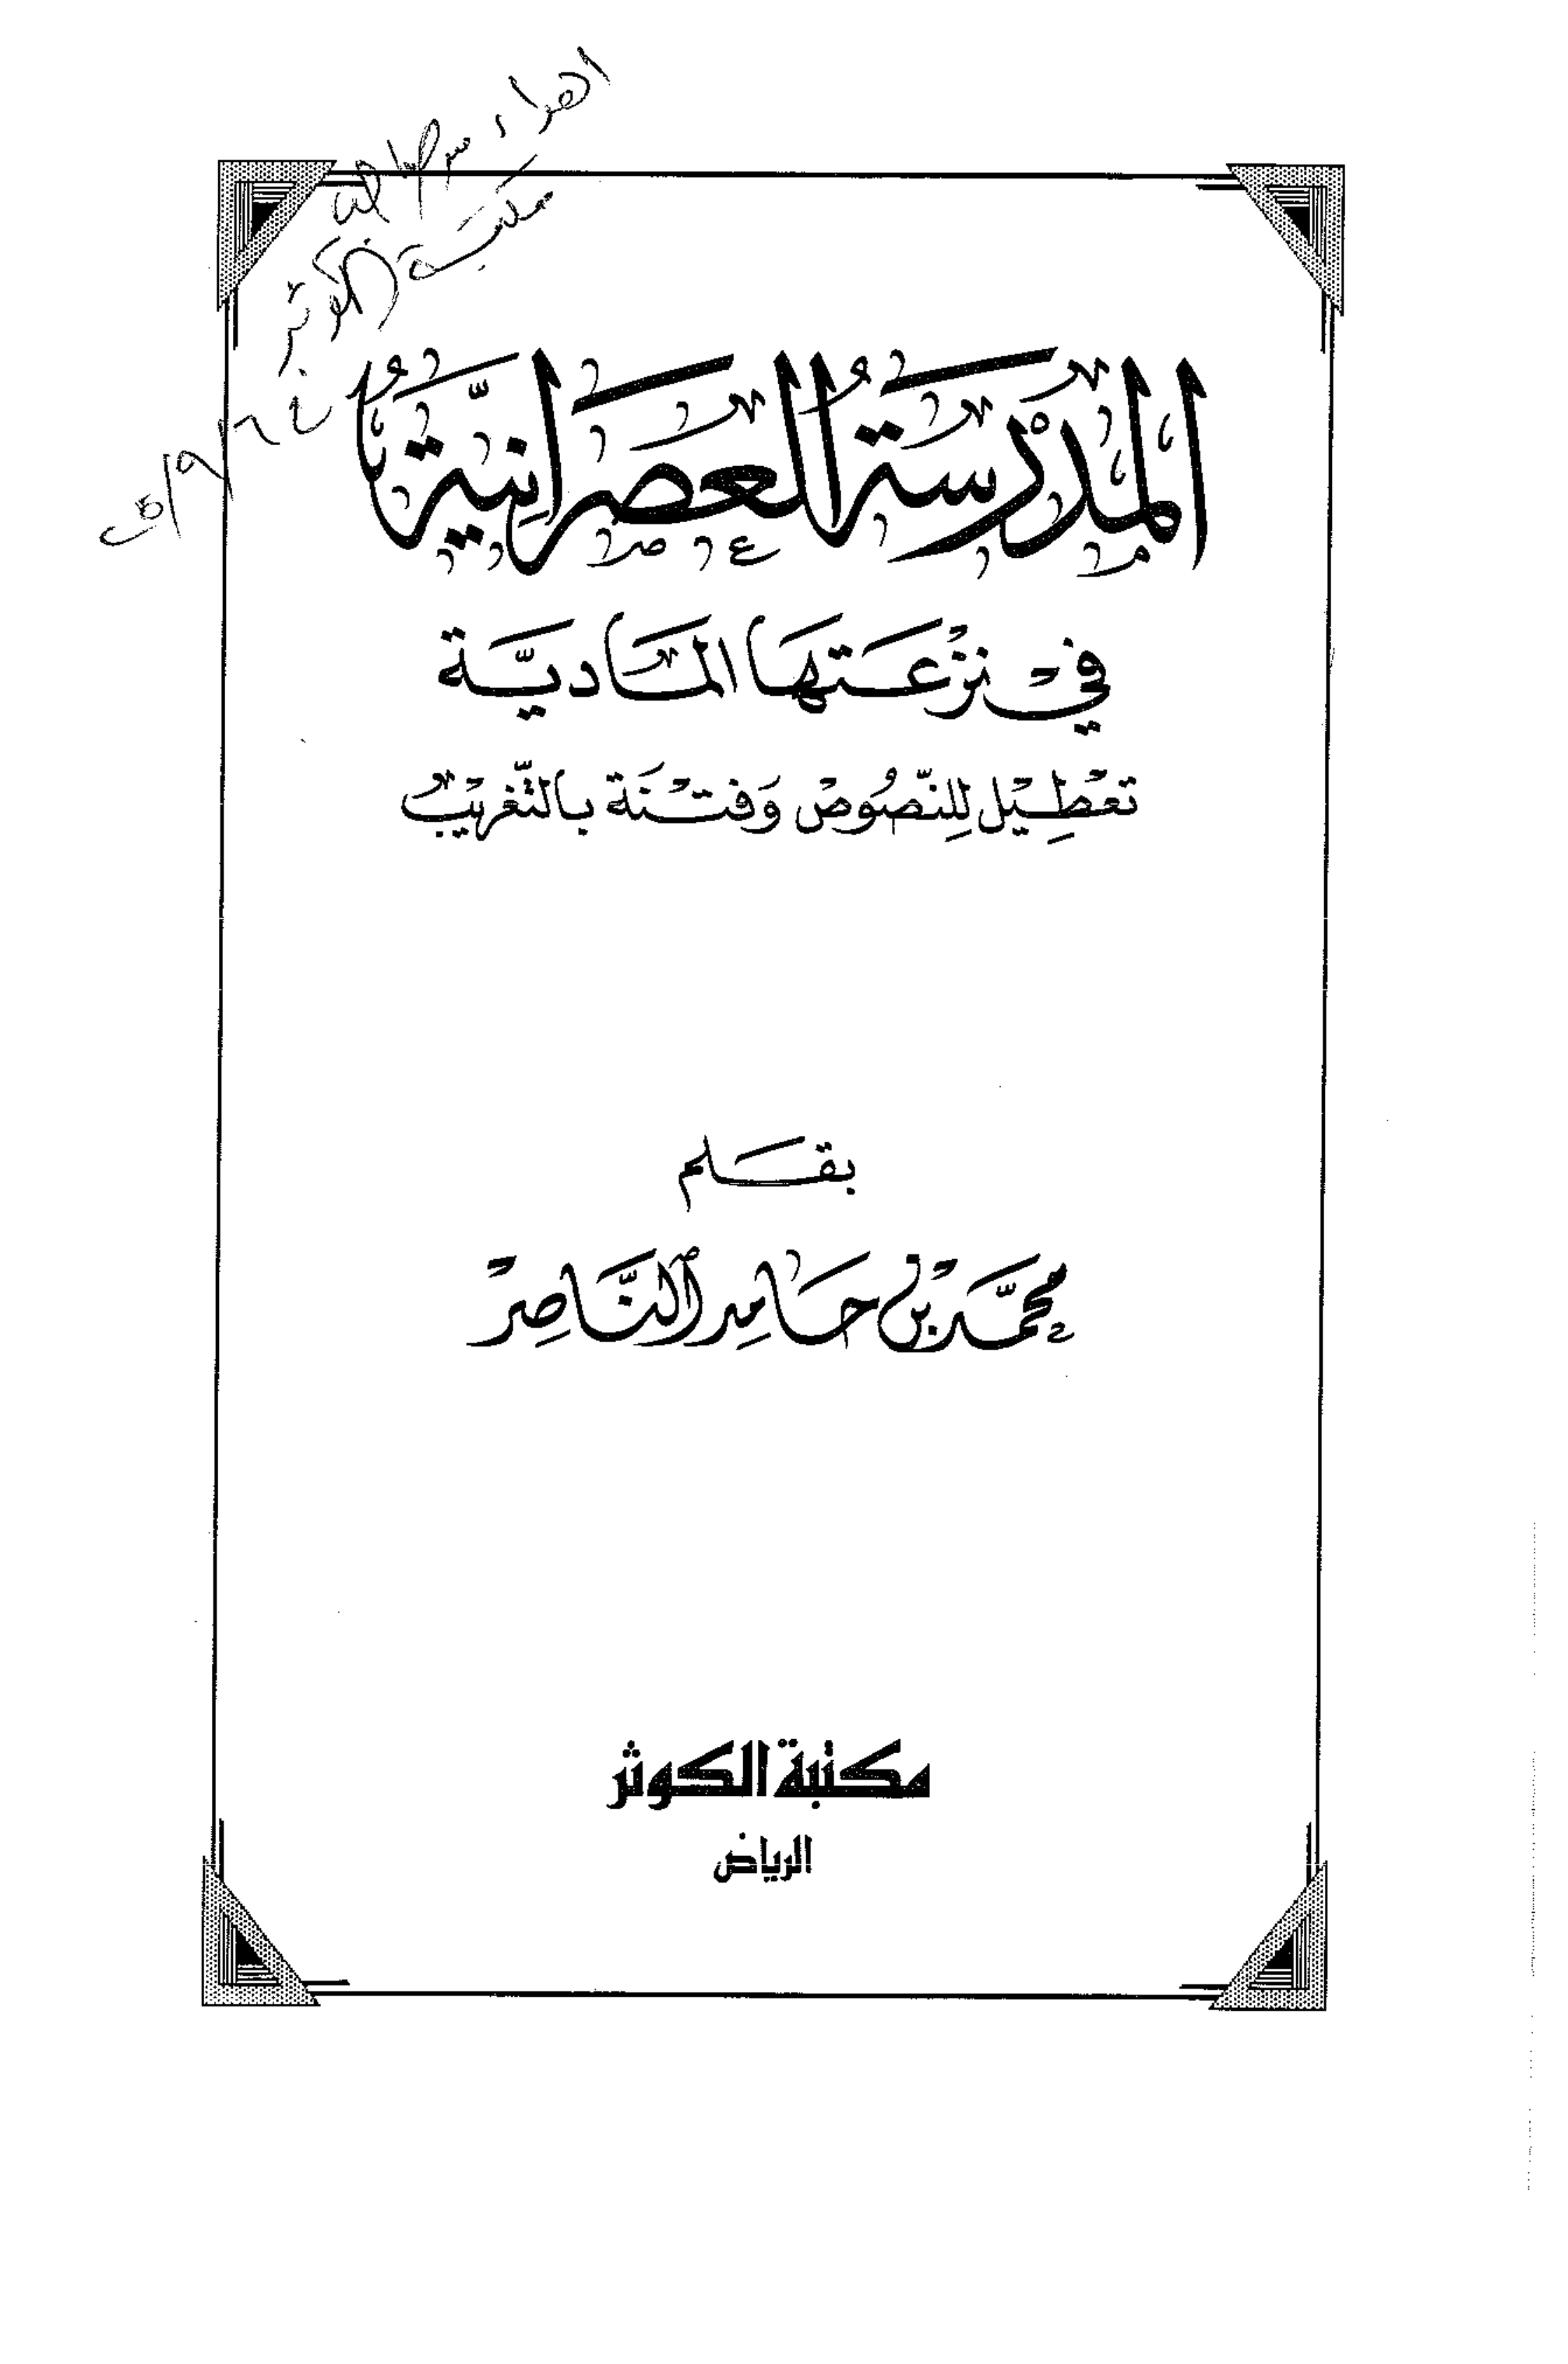 اهداء من
مكتبة الكوثر
المَدْرَسَةُ العَصْرَانِيَّةُ
في نزْعَتهَا المَاديَّة
تعْطِيْل لِلنّصُوصْ وَفتْنَة بالتّغريْب
بقلم
محمَّد بْن حَامِد النَّاصِرْ
مكتبة الكوثر
الرياض